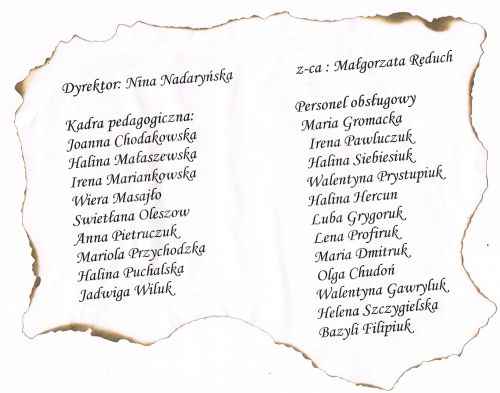 Dyrektor: Nina Nadaryńska
Kadra pedagogiczna:
Joanna Chodakowska
Halina Małaszewska
Irena Mariankowska
Wiera Masajło
Swietłana Oleszow
Anna Pietruczuk
Mariola Przychodzka
Halina Puchalska
Jadwiga Wiluk
z-ca : Małgorzata Reduch
Personel obsługowy
Maria Gromacka
Irena Pawluczuk
Halina Siebiesiuk
Walentyna Prystupiuk
Halina Hercun
Luba Grygoruk
Lena Profiruk
Maria Dmitruk
Olga Chudoń
Walentyna Gawryluk
Helena Szczygielska
Bazyli Filipiuk